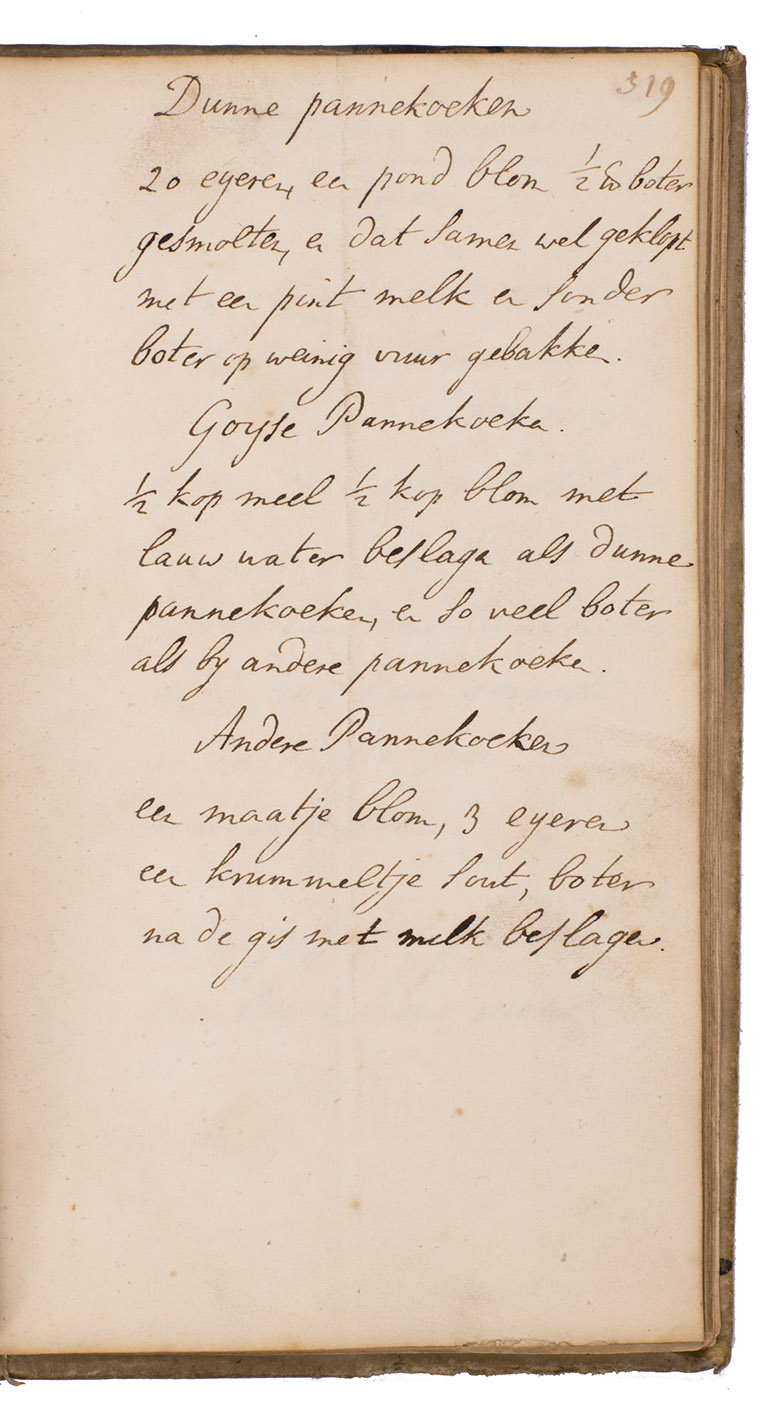 319
Dunne pannekoeken
20 eyeren, een pond blom ½ ℔ boter
gesmolten, en dat samen wel geklopt
met een pint melk en sonder
boter op weinig vuur gebakken.
Goyse Pannekoeken.
½ kop meel ½ kop blom met
lauw water beslagen als dunne
pannekoeken, en so veel boter
als by andere pannekoeken.
Andere Pannekoeken
een maatje blom, 3 eyeren
een krummeltje sout, boter
na de gis met melk beslagen.